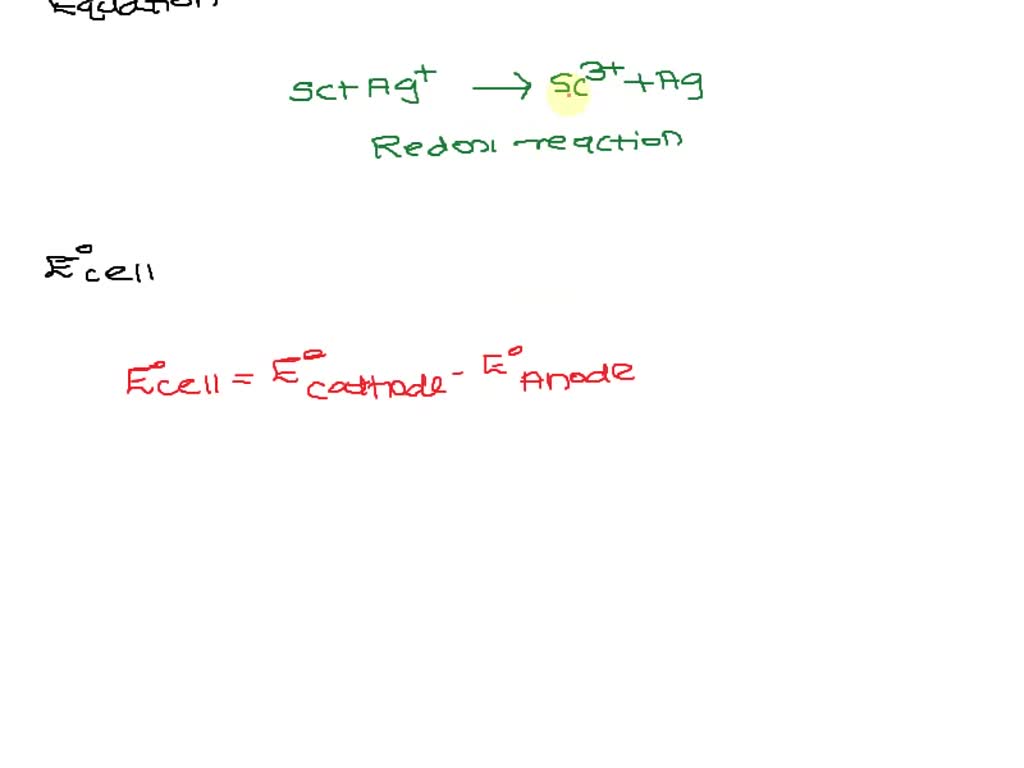 Equation
Sc + Ag⁺ → Sc³⁺ + Ag
Redox reaction
E°cell
E°cell = E°cathode - E°Anode